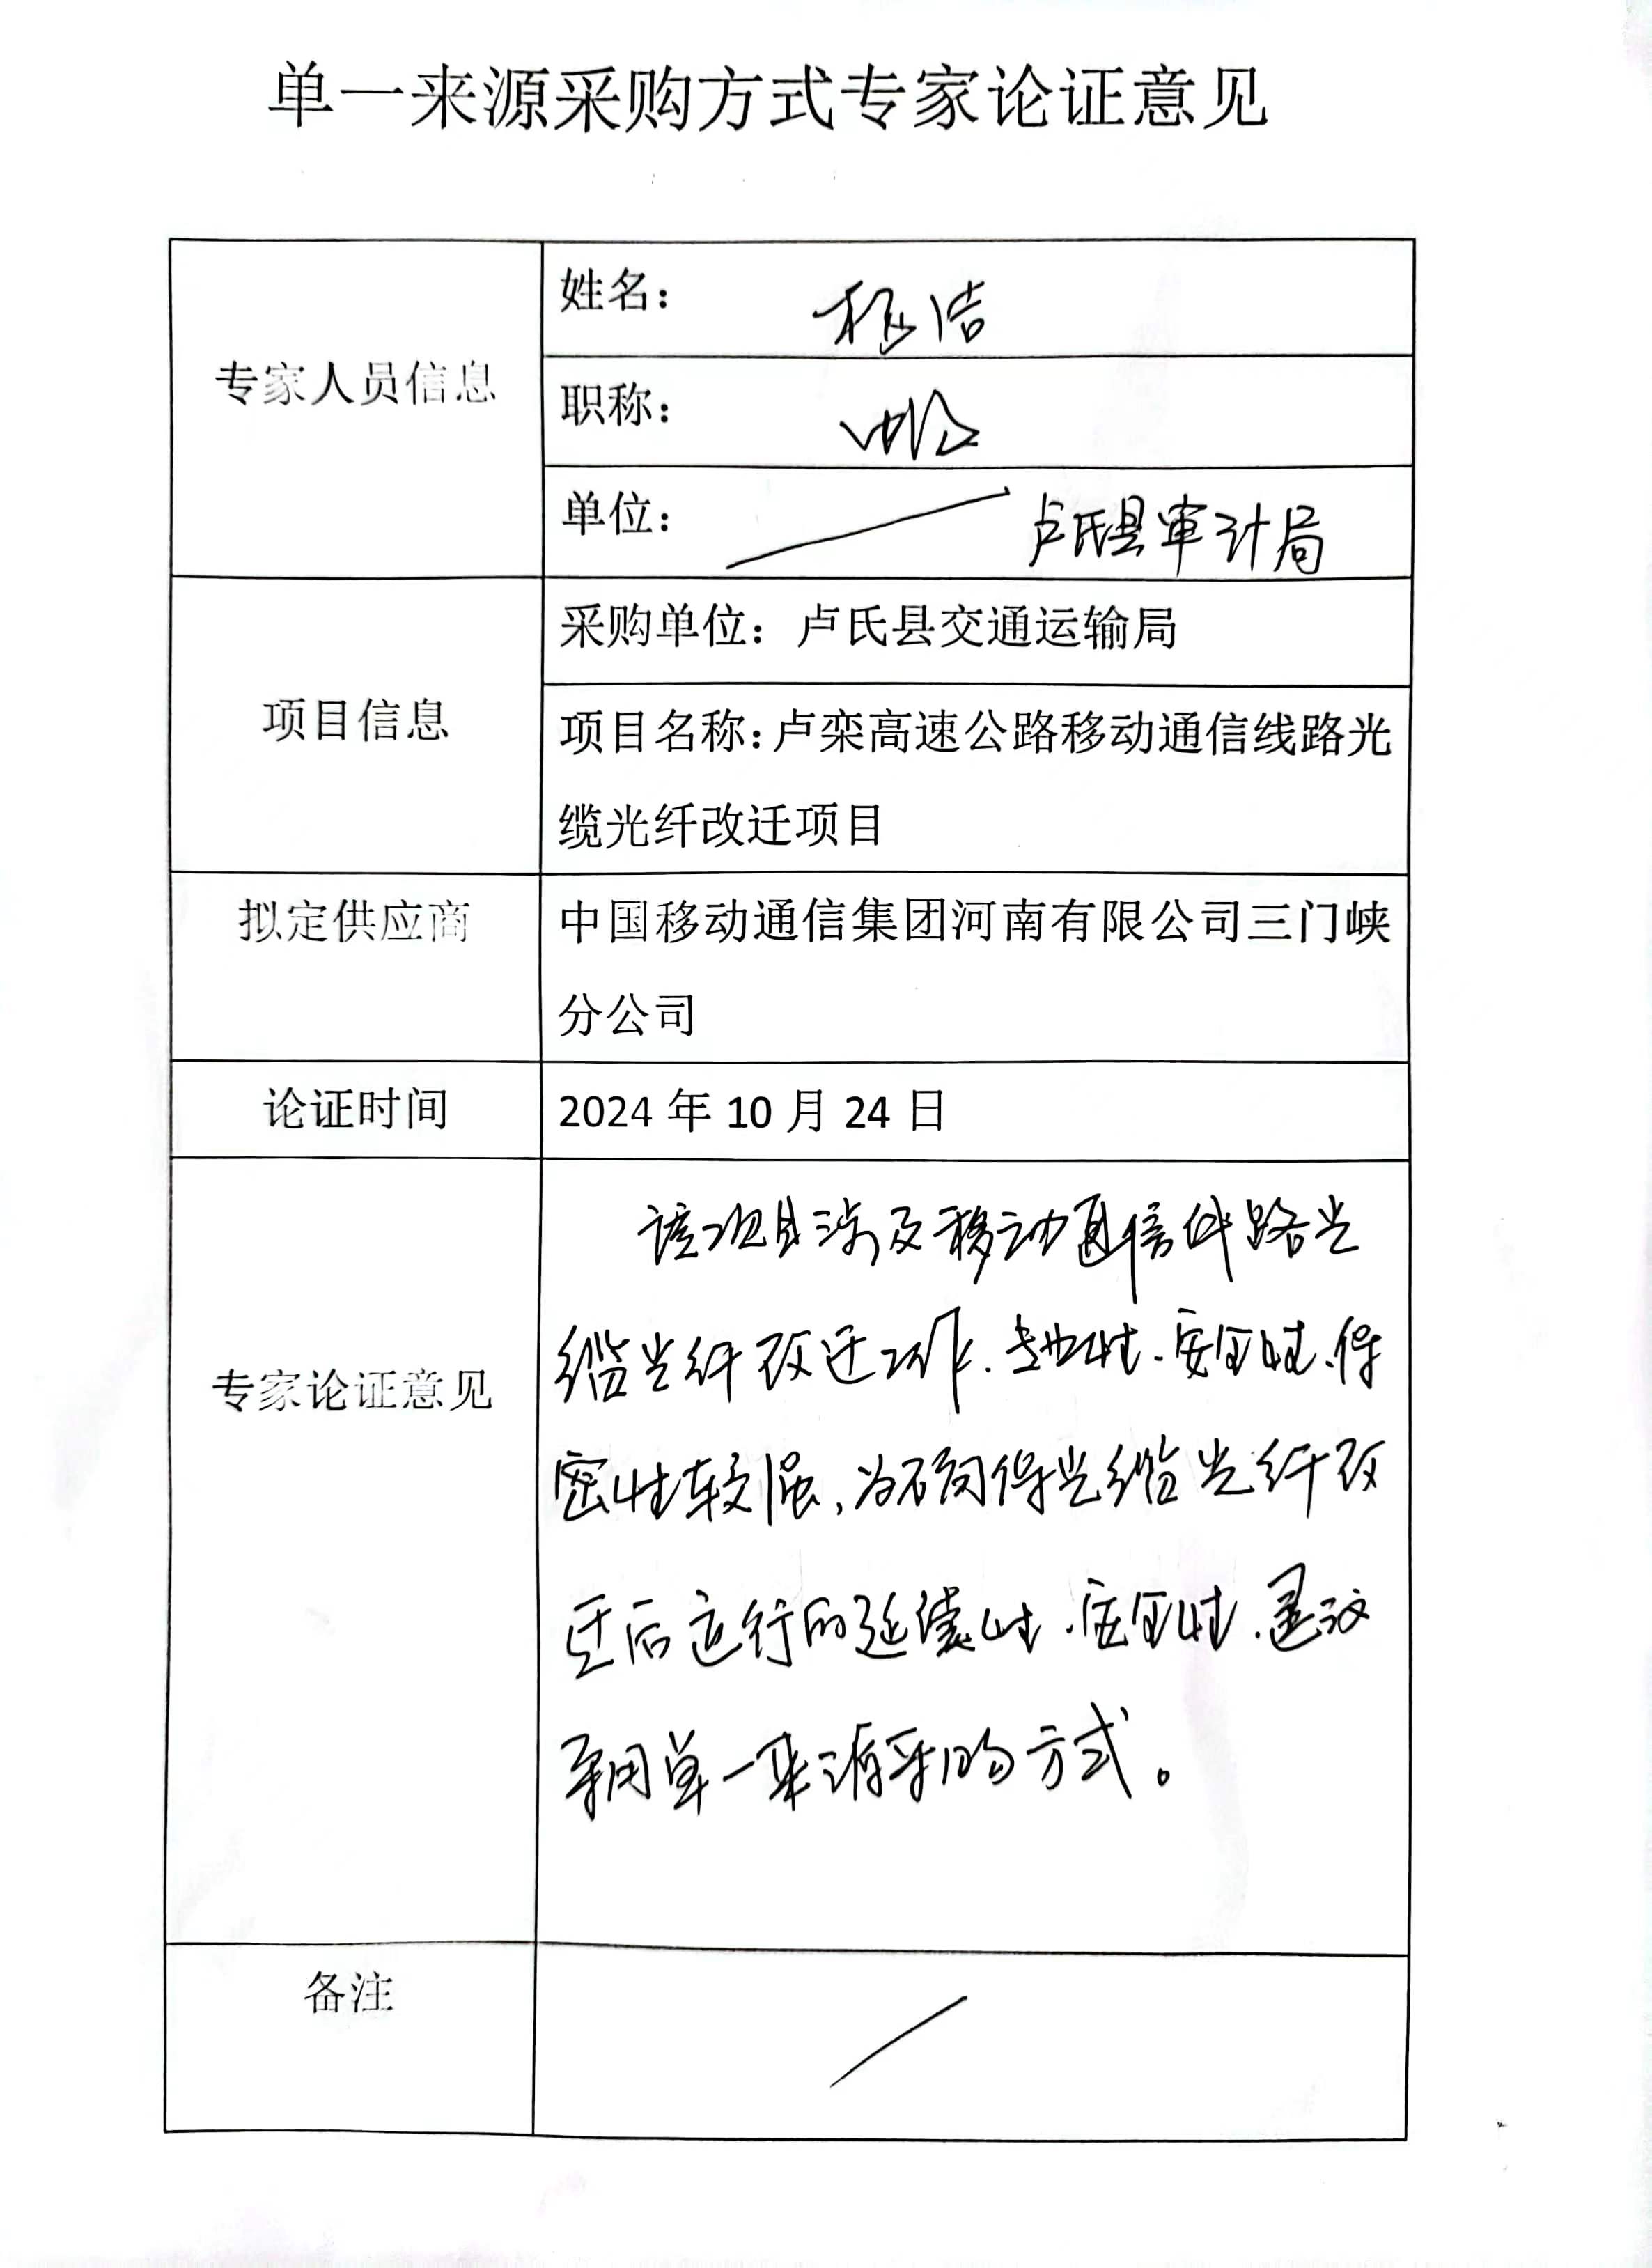 单一来源采购方式专家论证意见
专家人员信息
姓名：
职称：
单位： 卢氏县审计局
项目信息
采购单位：卢氏县交通运输局
项目名称：卢栾高速公路移动通信线路光
缆光纤改迁项目
拟定供应商
中国移动通信集团河南有限公司三门峡
分公司
论证时间
2024年10月24日
专家论证意见
该项目涉及移动通信线路光
缆光纤改迁工作、专业性、安全性、保
密性较强，为确保光缆光纤改
迁后运行的延续性、安全性、建议
采用单一来源采购方式。
备注